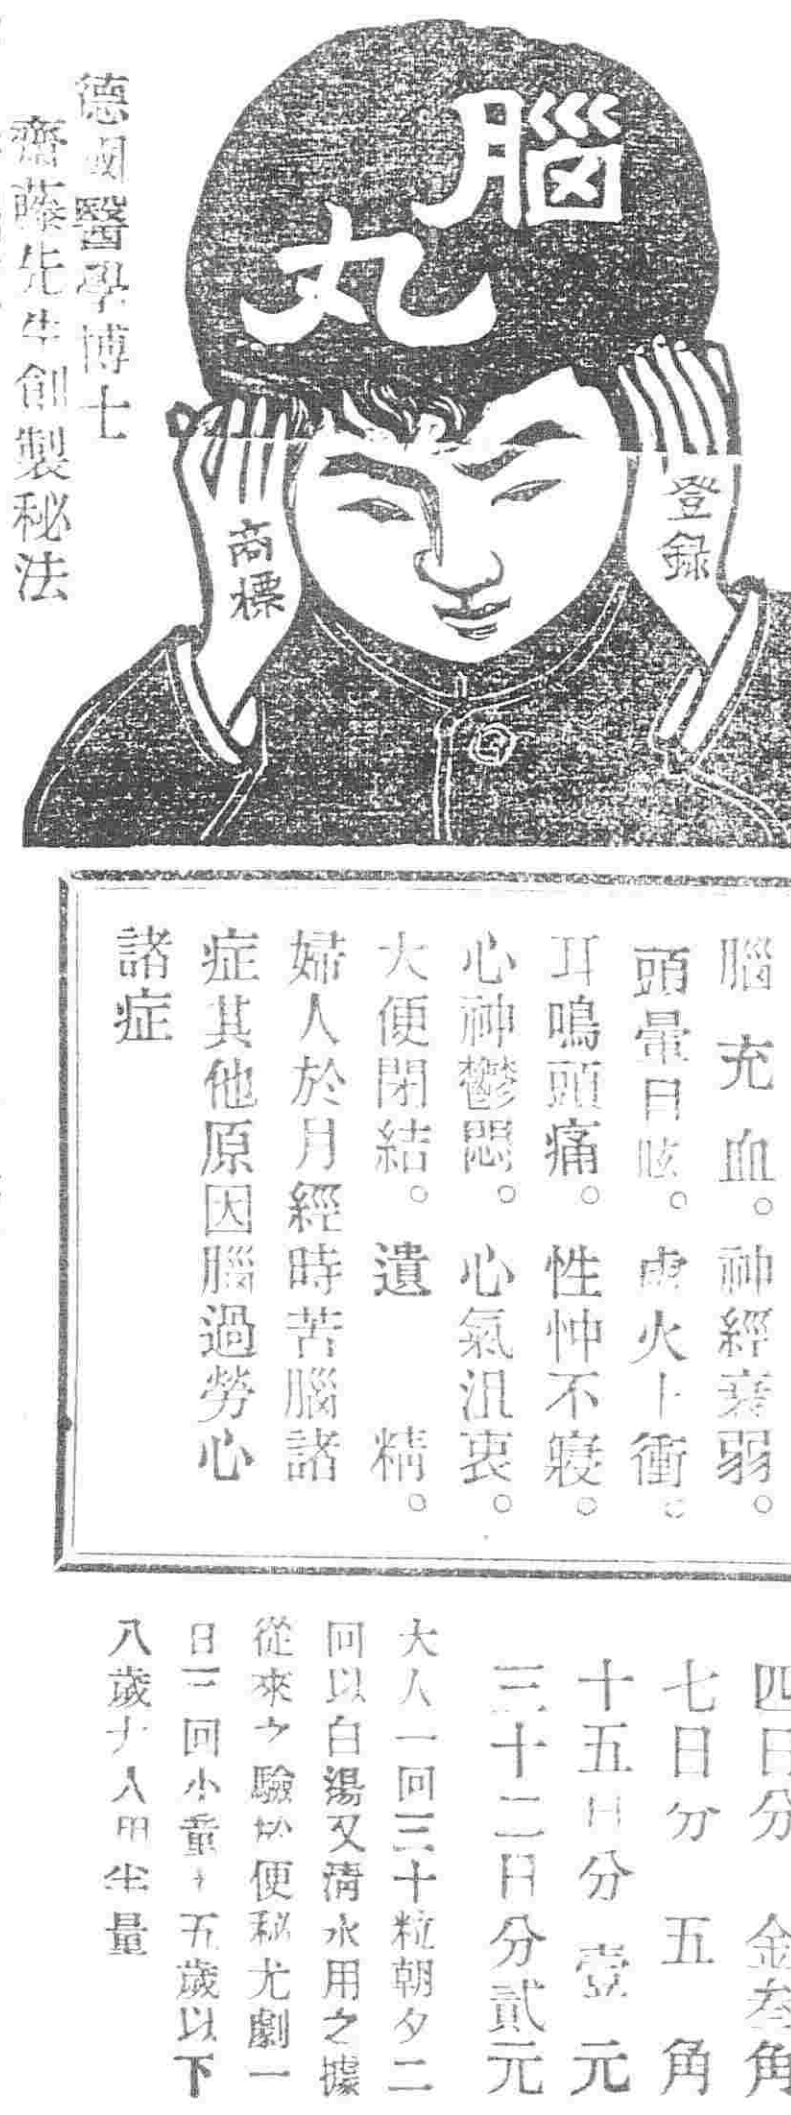 腦丸
登録
商標
德國醫學博士
齋藤先生創製秘法
腦充血。神經衰弱。
頭暈目眩。虛火上衝。
耳鳴頭痛。性忡不寢。
心神鬱悶。心氣沮衷。
大便閉結。遺精。
婦人於月經時苦腦諸
症其他原因腦過勞心
諸症
四日分 金叁角
七日分 五角
十五日分 壹元
三十二日分 貳元
大人一回三十粒朝夕二
回以白湯又清水用之據
從來之驗於便秘尤劇一
日三回小童十五歲以下
八歲大人用半量